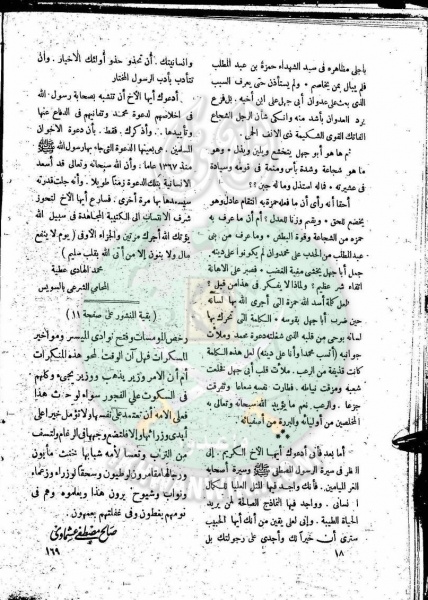 بأجلى مظاهره فى سيد الشهداء حمزة بن عبد المطلب
فلم يبال بمن يخاصم ، ولم يستأذن حتى يعرف السبب
الذى بعث على عدوان أبى جهل على ابن أخيه . بل فرع
يرد العدوان بأشد منه وانكى شأن الرجل الشجاع
الفاتك القوى الشكيمة ذى الانف الحمى
ثم ها هو أبو جهل يتخشع ويلين ويذل ، وهو
ما هو شجاعة وشدة بأس ومنعة فى قومه وسيادة
فى عشيرته . فماله استذل وما له جبن ؟؟
أتقا لشرعى أى أن ما فعله حمزة به انتقام عادل وهو
يخضع للحق ، ويقيم وزنا للعدل ؟ أم أن ما عرف به
حمزه من الشجاعة وقوة البطش ، وما عرف من بنى
عبد المطلب من الحدب على محمد وإن لم يكونوا على دينه .
جعل أبا جهل يخشى مغبة الغضب ، فصبر على الاهانة
اتقاء شر عظيم ؟ ولماذا لا يفكر فى هذا من قبل ؟
العل كلمة أسد الله حمزة التى أجرى الله بها لسانه
حين ضرب أبا جهل بقوسه . الكلمة التى تحرك بها
لسانه بوحى من قلبه الذى شغلته دعوة محمد وملأت
جوانبه ( أتسب محمدا وأنا على دينه ) لعل هذه الكلمة
كانت قذيفة من الرعب . ملأت قلب أبى جهل فخلعت
شعبه ومزقت نياطه . فطارت نفسه شعاعا وتفرقت
جزعا . والرعب . نعم ما يؤيد الله سبحانه وتعالى به
المخلصين من أوليائه والبررة من أصفيائه .
أما بعد فأن أدعوك أيها الأخ الكريم . إلى
النظر فى سيرة الرسول المصطفى ﷺ وسيرة أصحابه
الغر الميامين . فأنك واجد فيها المثل العليا للكمال
الانسانى . وواجد فيها النماذج الصالحة لمن يريد
الحياة الطيبة . وإنى لعلى يقين من أنك أيها الحبيب
سترى أن خيراً لك وأجدى على رجولتك بل
١٨
وإنسانيتك . أن تحذو حذو أولئك الاخيار . وأن
تتأدب بأدب الرسول المختار
أدعوك أيها الأخ أن تتشبه بصحابة رسول الله
فى إخلاصهم لدعوة محمد وتفانيهم فى الدفاع عنها
وتأييدها . وأذكرك . فقط . بأن دعوة الاخوان
المسلمين . هى بعينها الدعوة التى جاء بها رسول الله ﷺ
منذ ١٣٦٧ عاما : وأن الله سبحانه وتعالى قد أسعد
الانسانية بتلك الدعوة زمنا طويلا . وأنه جلت قدرته
سيسعدها بها مرة أخرى . فسارع أيها الأخ لتحوز
شرف الانتساب الى الكتيبة المجاهدة فى سبيل الله
يؤتك الله أجرك مرتين والجزاء الأوفى ( يوم لا ينفع
مال ولا بنون إلا من أتى الله بقلب سليم )
محمد الهادى عطية
المحامى الشرعى بالسويس
( بقية المنشور على صفحة ١١ )
رخص المومسات وفتح نوادى الميسر ومواخير
المسكرات فهل آن الوقت لمحو هذه المنكرات
أم أن الأمر وزير يذهب ووزير يجىء وكلهم
فى السكوت على الفجور سواء لو حدث هذا
فعلى الأمة أن تعتمد على نفسها ولا تؤمل خيرا على
أيدى وزرائها
من التراب وتعسا لأمة شبابها خنث مأبون
ورجالها مقامرون لوطيون وسحقا لوزراء وزعماء
ونواب وشيوخ يرون هذا ويعلموه وهم فى
نومهم يغطون وفى غفلتهم يعمهون .
صالح مصطفى عشماوى
١٦٩